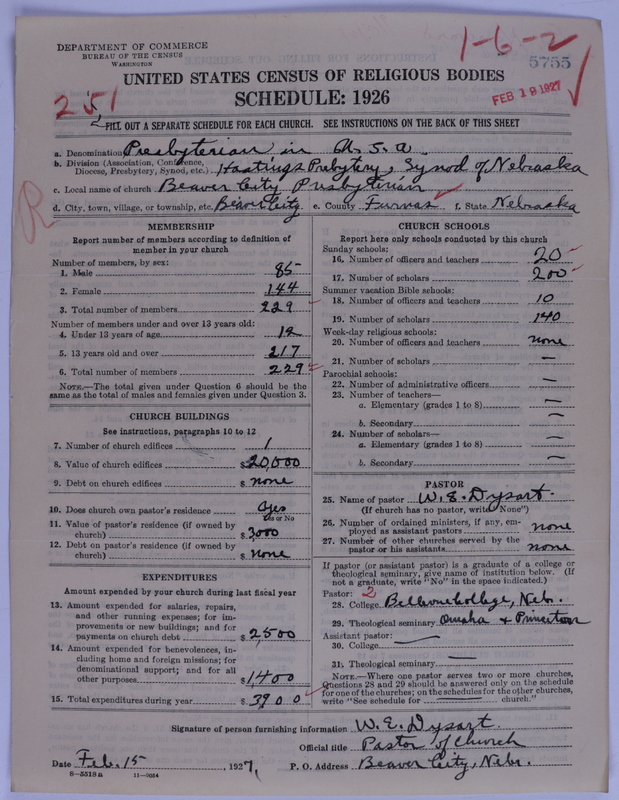 1-6-2
5755
FEB 19 1927
251
DEPARTMENT OF COMMERCE
BUREAU OF THE CENSUS
WASHINGTON
UNITED STATES CENSUS OF RELIGIOUS BODIES
SCHEDULE: 1926
FILL OUT A SEPARATE SCHEDULE FOR EACH CHURCH. SEE INSTRUCTIONS ON THE BACK OF THIS SHEET
a. Denomination Presbyterian in U.S.A.
b. Division (Association, Conference, Diocese, Presbytery, Synod, etc.) Hastings Presbytery, Synod of Nebraska
c. Local name of church Beaver City Presbyterian
d. City, town, village, or township, etc. Beaver City e. County Furnas f. State Nebraska
R
MEMBERSHIP
Report number of members according to definition of
member in your church
Number of members, by sex:
1. Male 85
2. Female 144
3. Total number of members 229
Number of members under and over 13 years old:
4. Under 13 years of age 12
5. 13 years old and over 217
6. Total number of members 229
NOTE.—The total given under Question 6 should be the
same as the total of males and females given under Question 3.
CHURCH BUILDINGS
See instructions, paragraphs 10 to 12
7. Number of church edifices 1
8. Value of church edifices $20,000
9. Debt on church edifices $none
10. Does church own pastor's residence yes
Yes or No
11. Value of pastor's residence (if owned by
church) $3000
12. Debt on pastor's residence (if owned by
church) $none
EXPENDITURES
Amount expended by your church during last fiscal year
13. Amount expended for salaries, repairs,
and other running expenses; for im-
provements or new buildings; and for
payments on church debt $2500
14. Amount expended for benevolences, in-
cluding home and foreign missions; for
denominational support; and for all
other purposes $1400
15. Total expenditures during year $3900
CHURCH SCHOOLS
Report here only schools conducted by this church
Sunday schools:
16. Number of officers and teachers 20
17. Number of scholars 200
Summer vacation Bible schools:
18. Number of officers and teachers 10
19. Number of scholars 140
Week-day religious schools:
20. Number of officers and teachers none
21. Number of scholars —
Parochial schools:
22. Number of administrative officers —
23. Number of teachers—
a. Elementary (grades 1 to 8) —
b. Secondary —
24. Number of scholars—
a. Elementary (grades 1 to 8) —
b. Secondary —
PASTOR
25. Name of pastor W. E. Dysart
(If church has no pastor, write "None")
26. Number of ordained ministers, if any, em-
ployed as assistant pastors none
27. Number of other churches served by the
pastor or his assistants none
If pastor (or assistant pastor) is a graduate of a college or
theological seminary, give name of institution below. (If
not a graduate, write "No" in the space indicated.)
Pastor: 2
28. College Bellevue College, Neb.
29. Theological seminary Omaha & Princeton
Assistant pastor:
30. College —
31. Theological seminary —
NOTE.—Where one pastor serves two or more churches,
Questions 28 and 29 should be answered only on the schedule
for one of the churches; on the schedules for the other churches,
write "See schedule for ——— church."
Signature of person furnishing information W. E. Dysart
Official title Pastor of Church
Date Feb. 15 1927. P. O. Address Beaver City, Nebr.
8-5518a 11-9084